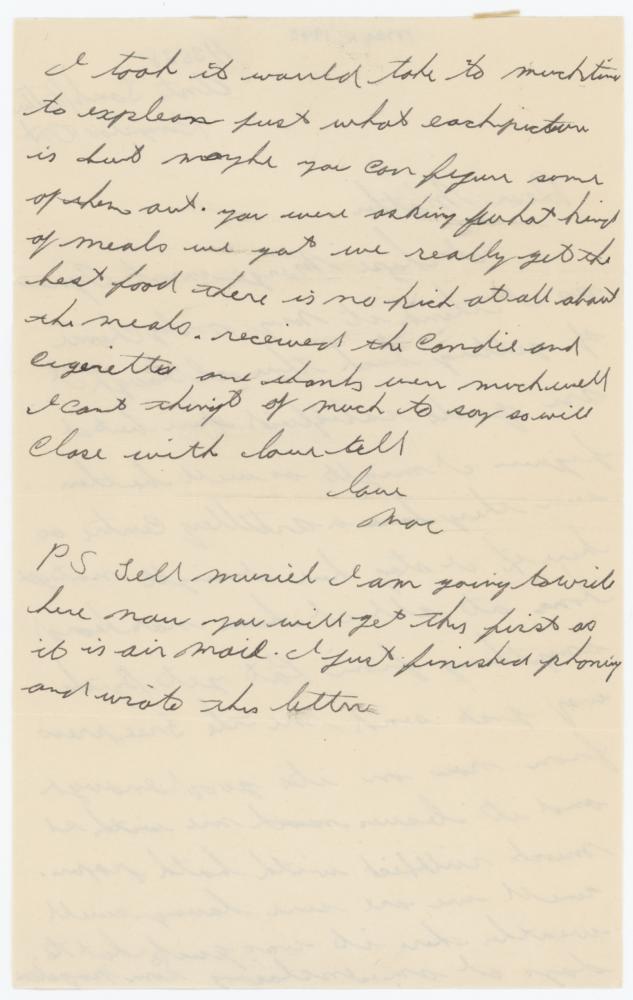 I took it would take to much time
to explean just what each picture
is but maybe you can figure some
of them out. you were asking what kind
of meals we got we really get the
best food there is no kick at all about
the meals. received the Candie and
Cigerette and thanks very much well
I cant thingt of much to say so will
Close with love tell
love
Mac
PS Tell muriel I am going to write
here now you will get this first as
it is air mail. I just finished phoning
and wrote this letter